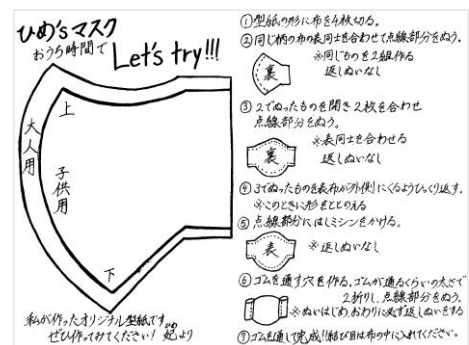 ひめ'sマスク
おうち時間で
Let's try!!!
大人用
上
子供用
下
私が作ったオリジナル型紙です。
ぜひ作ってみてください! 妃より
ひめ
①型紙の形に布を4枚切る。
②同じ柄の布の表同士を合わせて点線部分をぬう。
※同じものを2組作る
返しぬいなし
裏
③2でぬったものを開き2枚を合わせ
点線部分をぬう。
※表同士を合わせる
返しぬいなし
裏
④3でぬったものを表布が外側にくるようひっくり返す。
※このときに形をととのえる
⑤点線部分にはしミシンをかける。
※返しぬいなし
表
⑥ゴムを通す穴を作る。ゴムが通るくらいの太さで
2折りし、点線部分をぬう。
※ぬいはじめ、おわりに必ず返しぬいをする
⑦ゴムを通して完成!!結び目は布の中に入れてください。